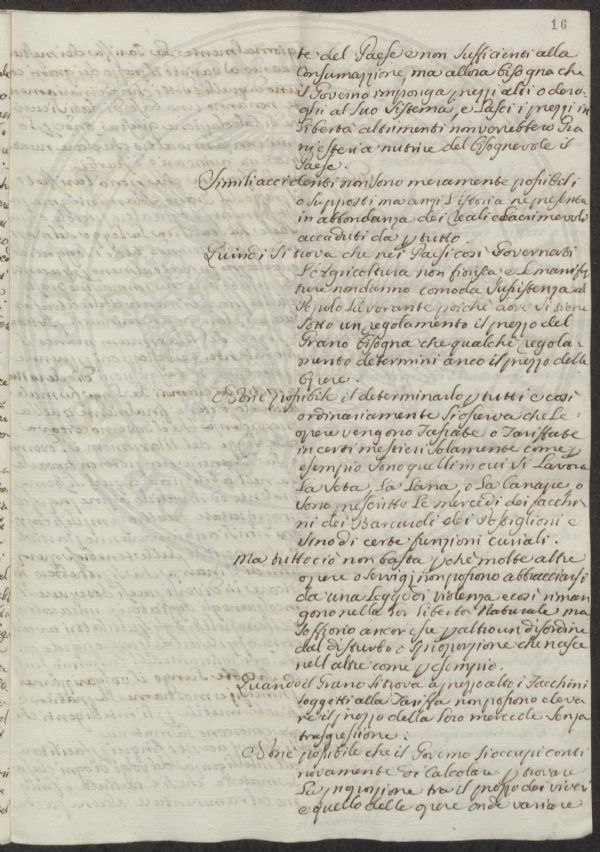 16
te del Paese e non sufficienti alla
Consumazzione, ma allora bisogna che
il Governo imponga prezzi alti o dero-
ghi al suo sistema, e lasci i prezzi in
libertà altrimenti non vorrebbero Gra
ni esteri a nutrire del bisognevole il
Paese.
Simili accidenti non sono meramente possibili
o supposti ma anzi l'istoria ne presenta
in abbondanza dei Reali e
accaduti da p tutto.
Quindi si trova che nei Paesi così Governati
l'Agricoltura non fiorisce e le manifat
ture non danno comoda sussistenza al
Popolo lavorante poiché dove si tiene
sotto un regolamento il prezzo del
Grano bisogna che qualche regola-
mento determini anco il prezzo delle
opere.
Né è possibile il determinarlo p tutti e così
ordinariamente si osserva che le
opere vengono Tassate o Tariffate
in certi mestieri solamente come p
esempio sono quelli in cui si Lavora
La Seta, La Lana, o La Canape, o
sono prescritte le mercedi dei facchi-
ni dei Barcaroli dei Postiglioni e
sino di certe funzioni curiali.
Ma tutto ciò non basta p che molte altre
opere o servigj non possono abbracciarsi
da una Legge di violenza e così riman
gono nella lor libertà Naturale ma
soffrono ancor esse p altro un disordine
dal disturbo o sproporzione che nasce
nell'altre come p esempio.
Quando il Grano si trova a prezzo alto i Facchini
soggetti alla Tariffa non possono eleva
re il prezzo della loro mercede senza
trasgressione.
Né è possibile che il Governo si occupi conti
novamente di calcolare p trovare
La proporzione tra il prezzo dei viveri
e quello delle opere onde variare